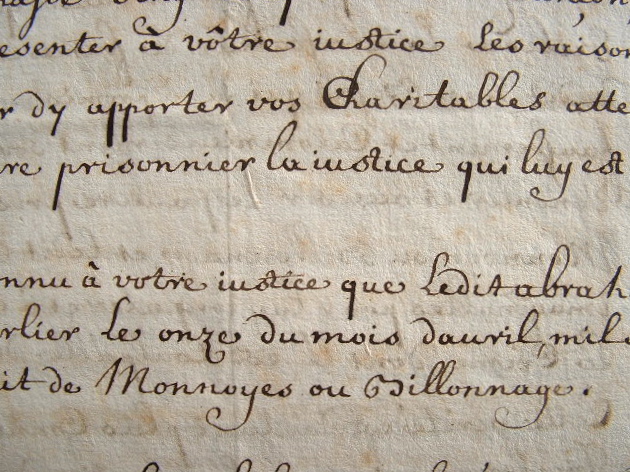 esenter à vôtre iustice les raison
r dy apporter vos Charitables atte
re prisonnier la iustice qui luy est
nnu à votre iustice que Ledit abrah
rlier Le onze du mois dauril, mil
it de Monnoyes ou Billonnage.